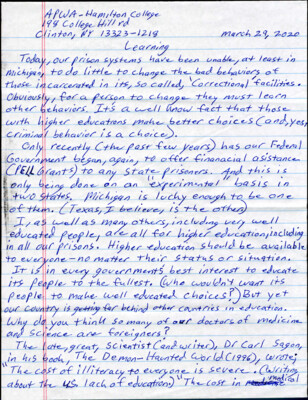 APWA-Hamilton College
198 College Hill rd
Clinton, NY 13323-1218 March 29, 2020
Learning
Today, our prison systems have been unable, at least in
Michigan, to do little to change the bad behaviors of
those incarcerated in its, so called, Correctional facilities.
Obviously, for a person to change they must learn
other behaviors. It's a well know fact that those
with higher educations make better choices (and, yes,
criminal behavior is a choice).
Only recently (the past few years) has our Federal
Government began, again, to offer financial asistance
(PELL Grants) to any State prisoners. And this is
only being done on an "experimental" basis in
two states. Michigan is lucky enough to be one
of them. (Texas, I believe, is the other)
I, as well as many others, including very well
educated people, are all for higher education, including
in all our prisons. Higher education should be available
to everyone-no matter their status or situation.
It is in every governments best interest to educate
its people to the fullest. (who wouldn't want its
people to make well educated choices?) But yet
our country is getting far behind other countries in education.
Why do you think so many of our doctors of medicine
and science are foreigners?
The late, great, scientist (and writer), Dr Carl Sagan,
in his book, The Demon-Haunted World (1996), wrote;
"The cost of illiteracy to everyone is severe. (Writing
about the US lack of education) "The cost in medical